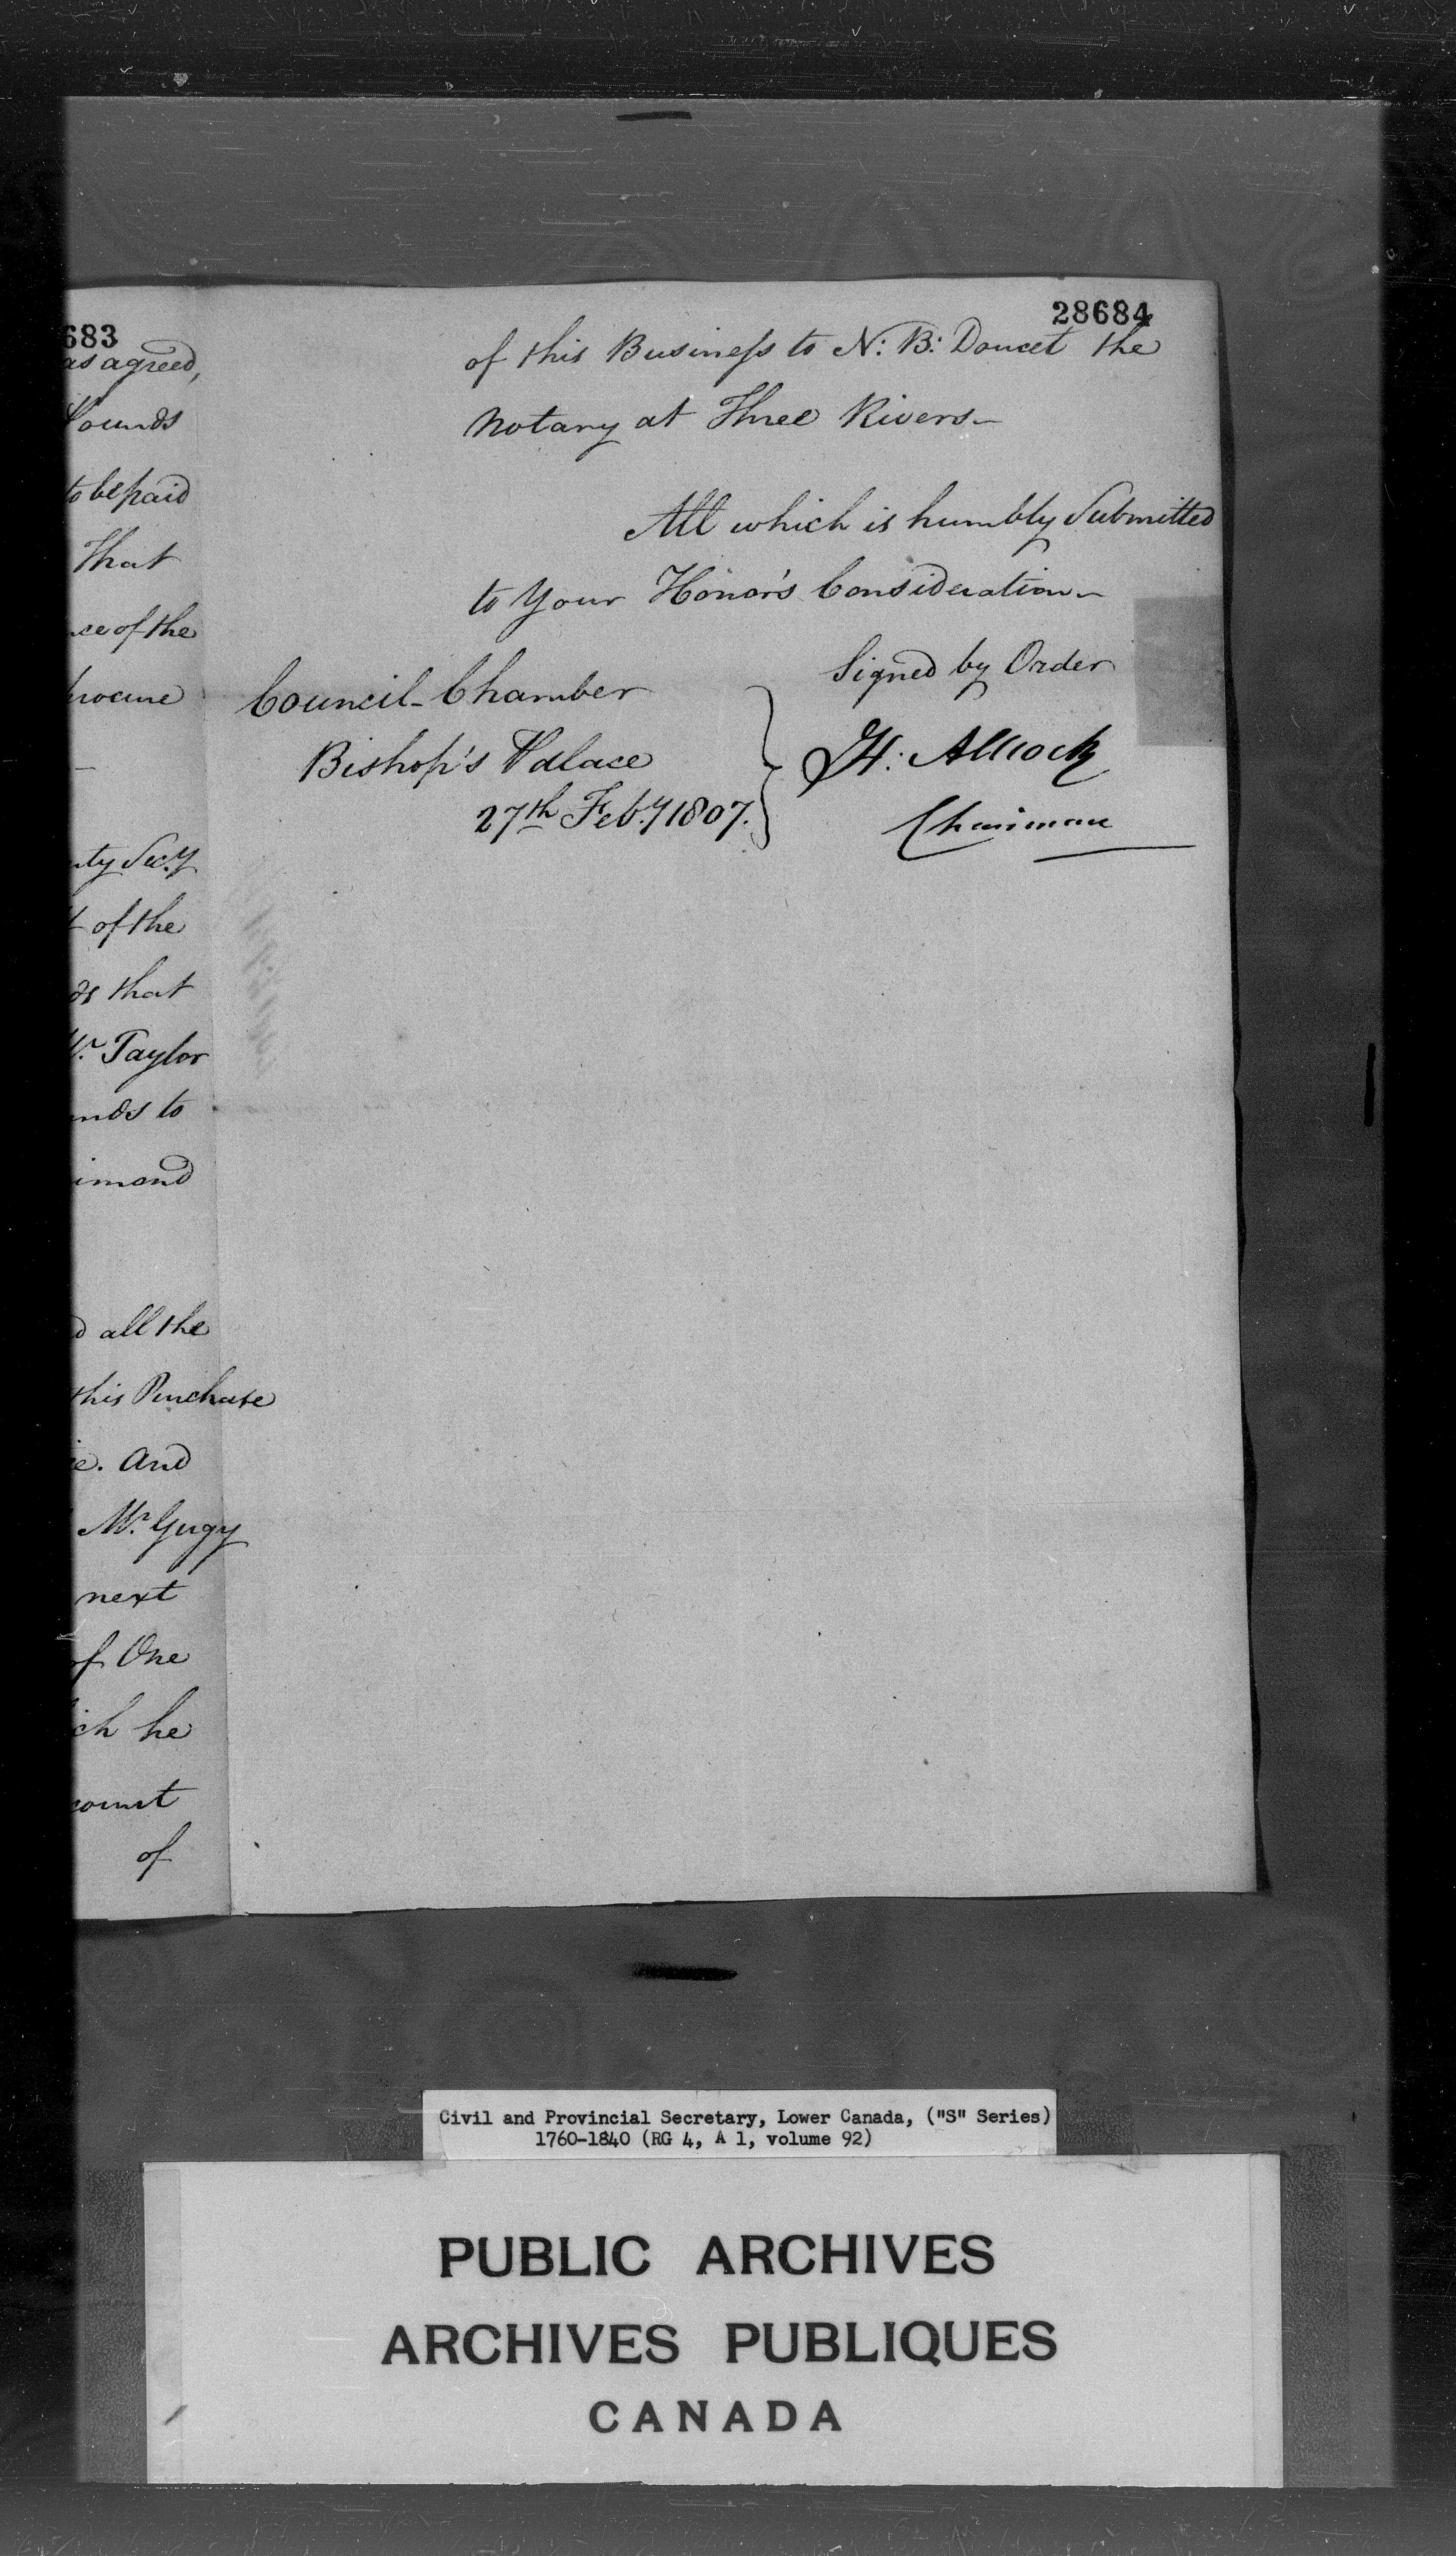 683
as agreed,
Pounds
to be paid
That
ce of the
procure
—
uty Secy.
of the
ds that
Mr. Taylor
unds to
imond
d all the
this Purchase
ie. And
Mr. Gugy
next
of One
ich he
count
of
28684
of this Businefs to N: B: Doucet the
Notary at Three Rivers—
All which is humbly Submitted
to Your Honor's Consideration—
Signed by Order
Council-Chamber
Bishop's Palace
27th Feby. 1807.
H: Allcock
Chairman
Civil and Provincial Secretary, Lower Canada, ("S" Series)
1760-1840 (RG 4, A 1, volume 92)
PUBLIC ARCHIVES
ARCHIVES PUBLIQUES
CANADA